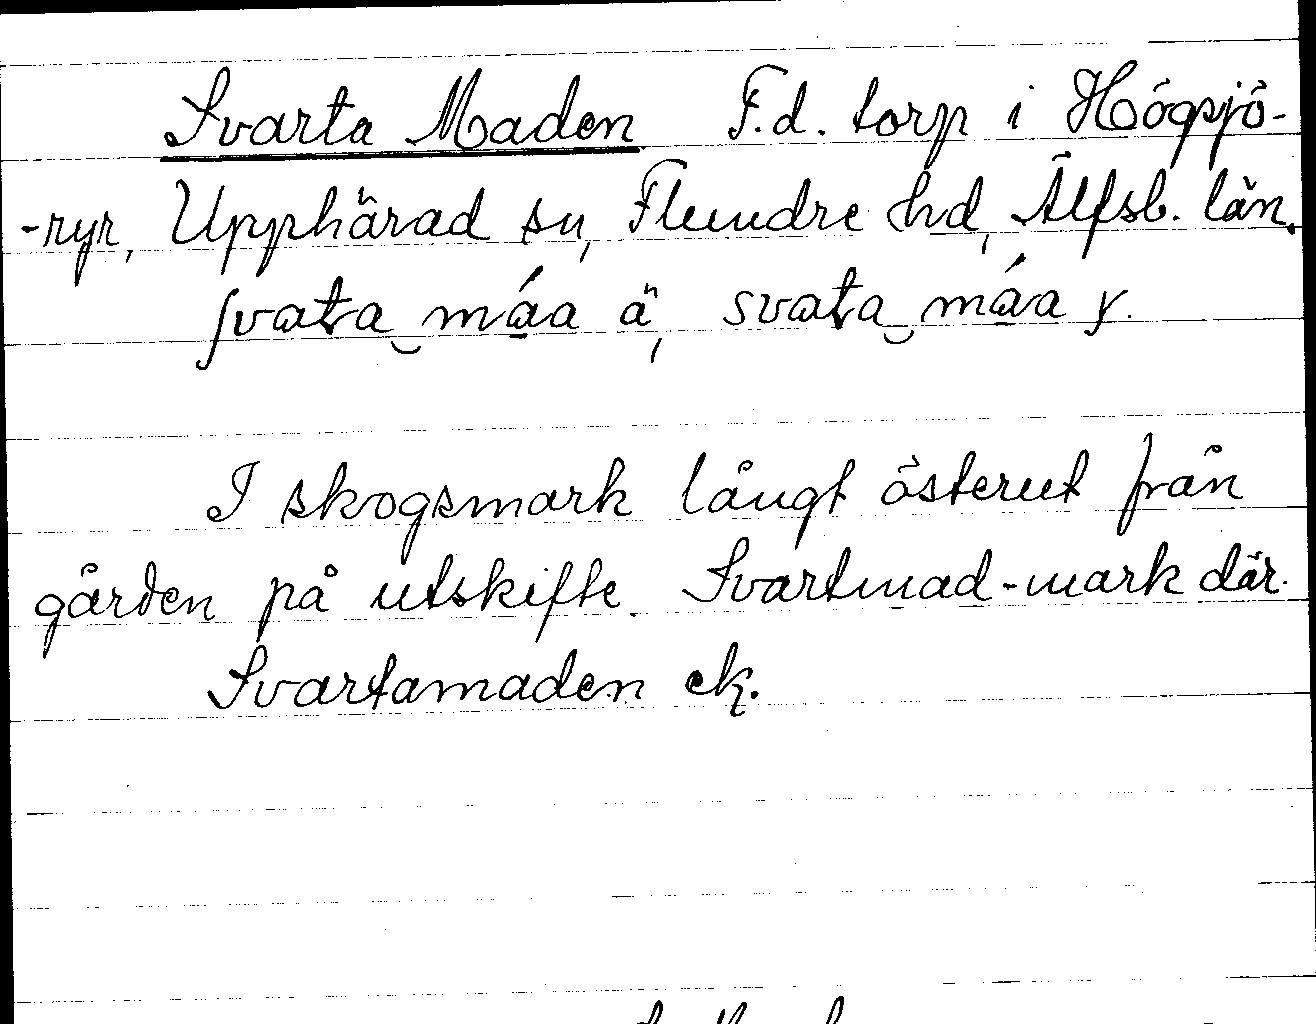 Svarta Maden F.d. torp i Högsjö-
-ryr, Upphärad sn, Flundre hd, Älfsb. län.
svata‿máa ä, svata‿máa y.
I skogsmark långt österut från
gården på utskifte. Svartmad-mark där.
Svartamaden ek.